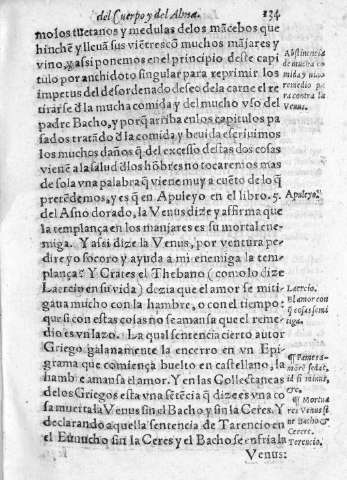 del Cuerpo y del Alma. 134
mo los tuetanos y medulas de los mãcebos que
hinchẽ y lleuã sus viẽtres cõ muchos mãjares y
vino, y assi ponemos en el principio deste capi
tulo por anchidoto singular para reprimir los
impetus del desordenado desseo de la carne el re
tirarse ď la mucha comida y del mucho vso del
padre Bacho, y porq̃ arriba en los capitulos pa
sados tratãdo ď la comida y beuida escriuimos
los muchos daños q̃ del excesso destas dos cosas
vienẽ a la salud ď los hõbres no tocaremos mas
de sola vna palabra q̃ viene muy a cuẽto de lo q̃
pretẽdemos, y es q̃ en Apuleyo en el libro. 5.
del Asno dorado, la Venus dize y affirma que
la templança en los manjares es su mortal ene-
miga. Y assi dize la Venus, por ventura pe-
dire yo socorro y ayuda a mi enemiga la tem-
plança? Y Crates el Thebano (como lo dize
Laercio en su vida) dezia que el amor se miti-
gaua mucho con la hambre, o con el tiempo:
que si con estas cosas no se amansa que el reme-
dio es vn lazo. La qual sentencia cierto autor
Griego galanamente la encerro en vn Epi-
grama que comiença buelto en castellano, la
hambre amansa el amor. Y en las Collectaneas
de los Griegos esta vna sẽtẽcia q̃ dize es vna co
sa muerta la Venus sin el Bacho y sin la Ceres. Y
declarando aquella sentencia de Tarencio en
el Eunucho sin la Ceres y el Bacho se enfria la
Venus:
Abstinencia
de mucha co
mida y vino
remedio pa
ra contra la
Venus.
Apuleyo.
Laercio.
El amor con
q̃ cosas se mi
tiga.
¶ Mortua
res Venus si
ne Bacho &
Cerere.
Terencio.